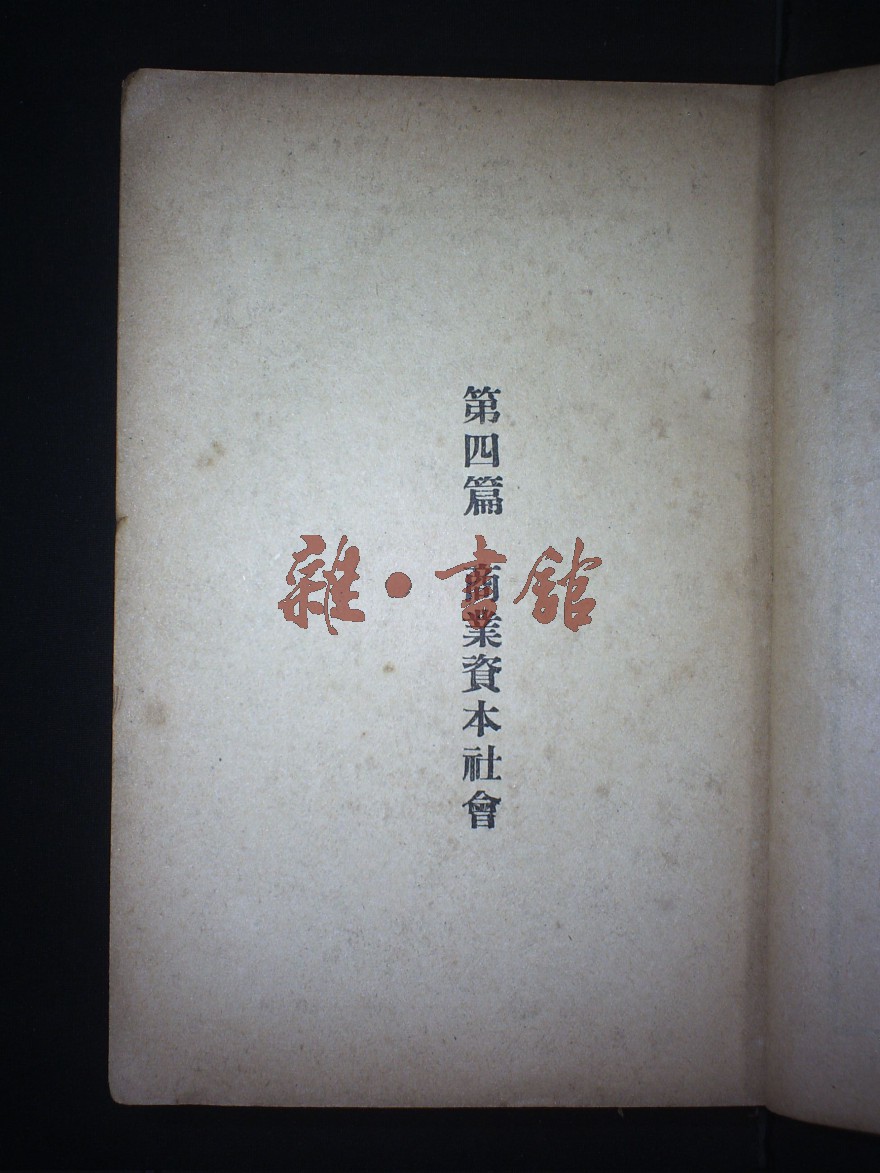 第四篇 商業資本社會
雜·書館